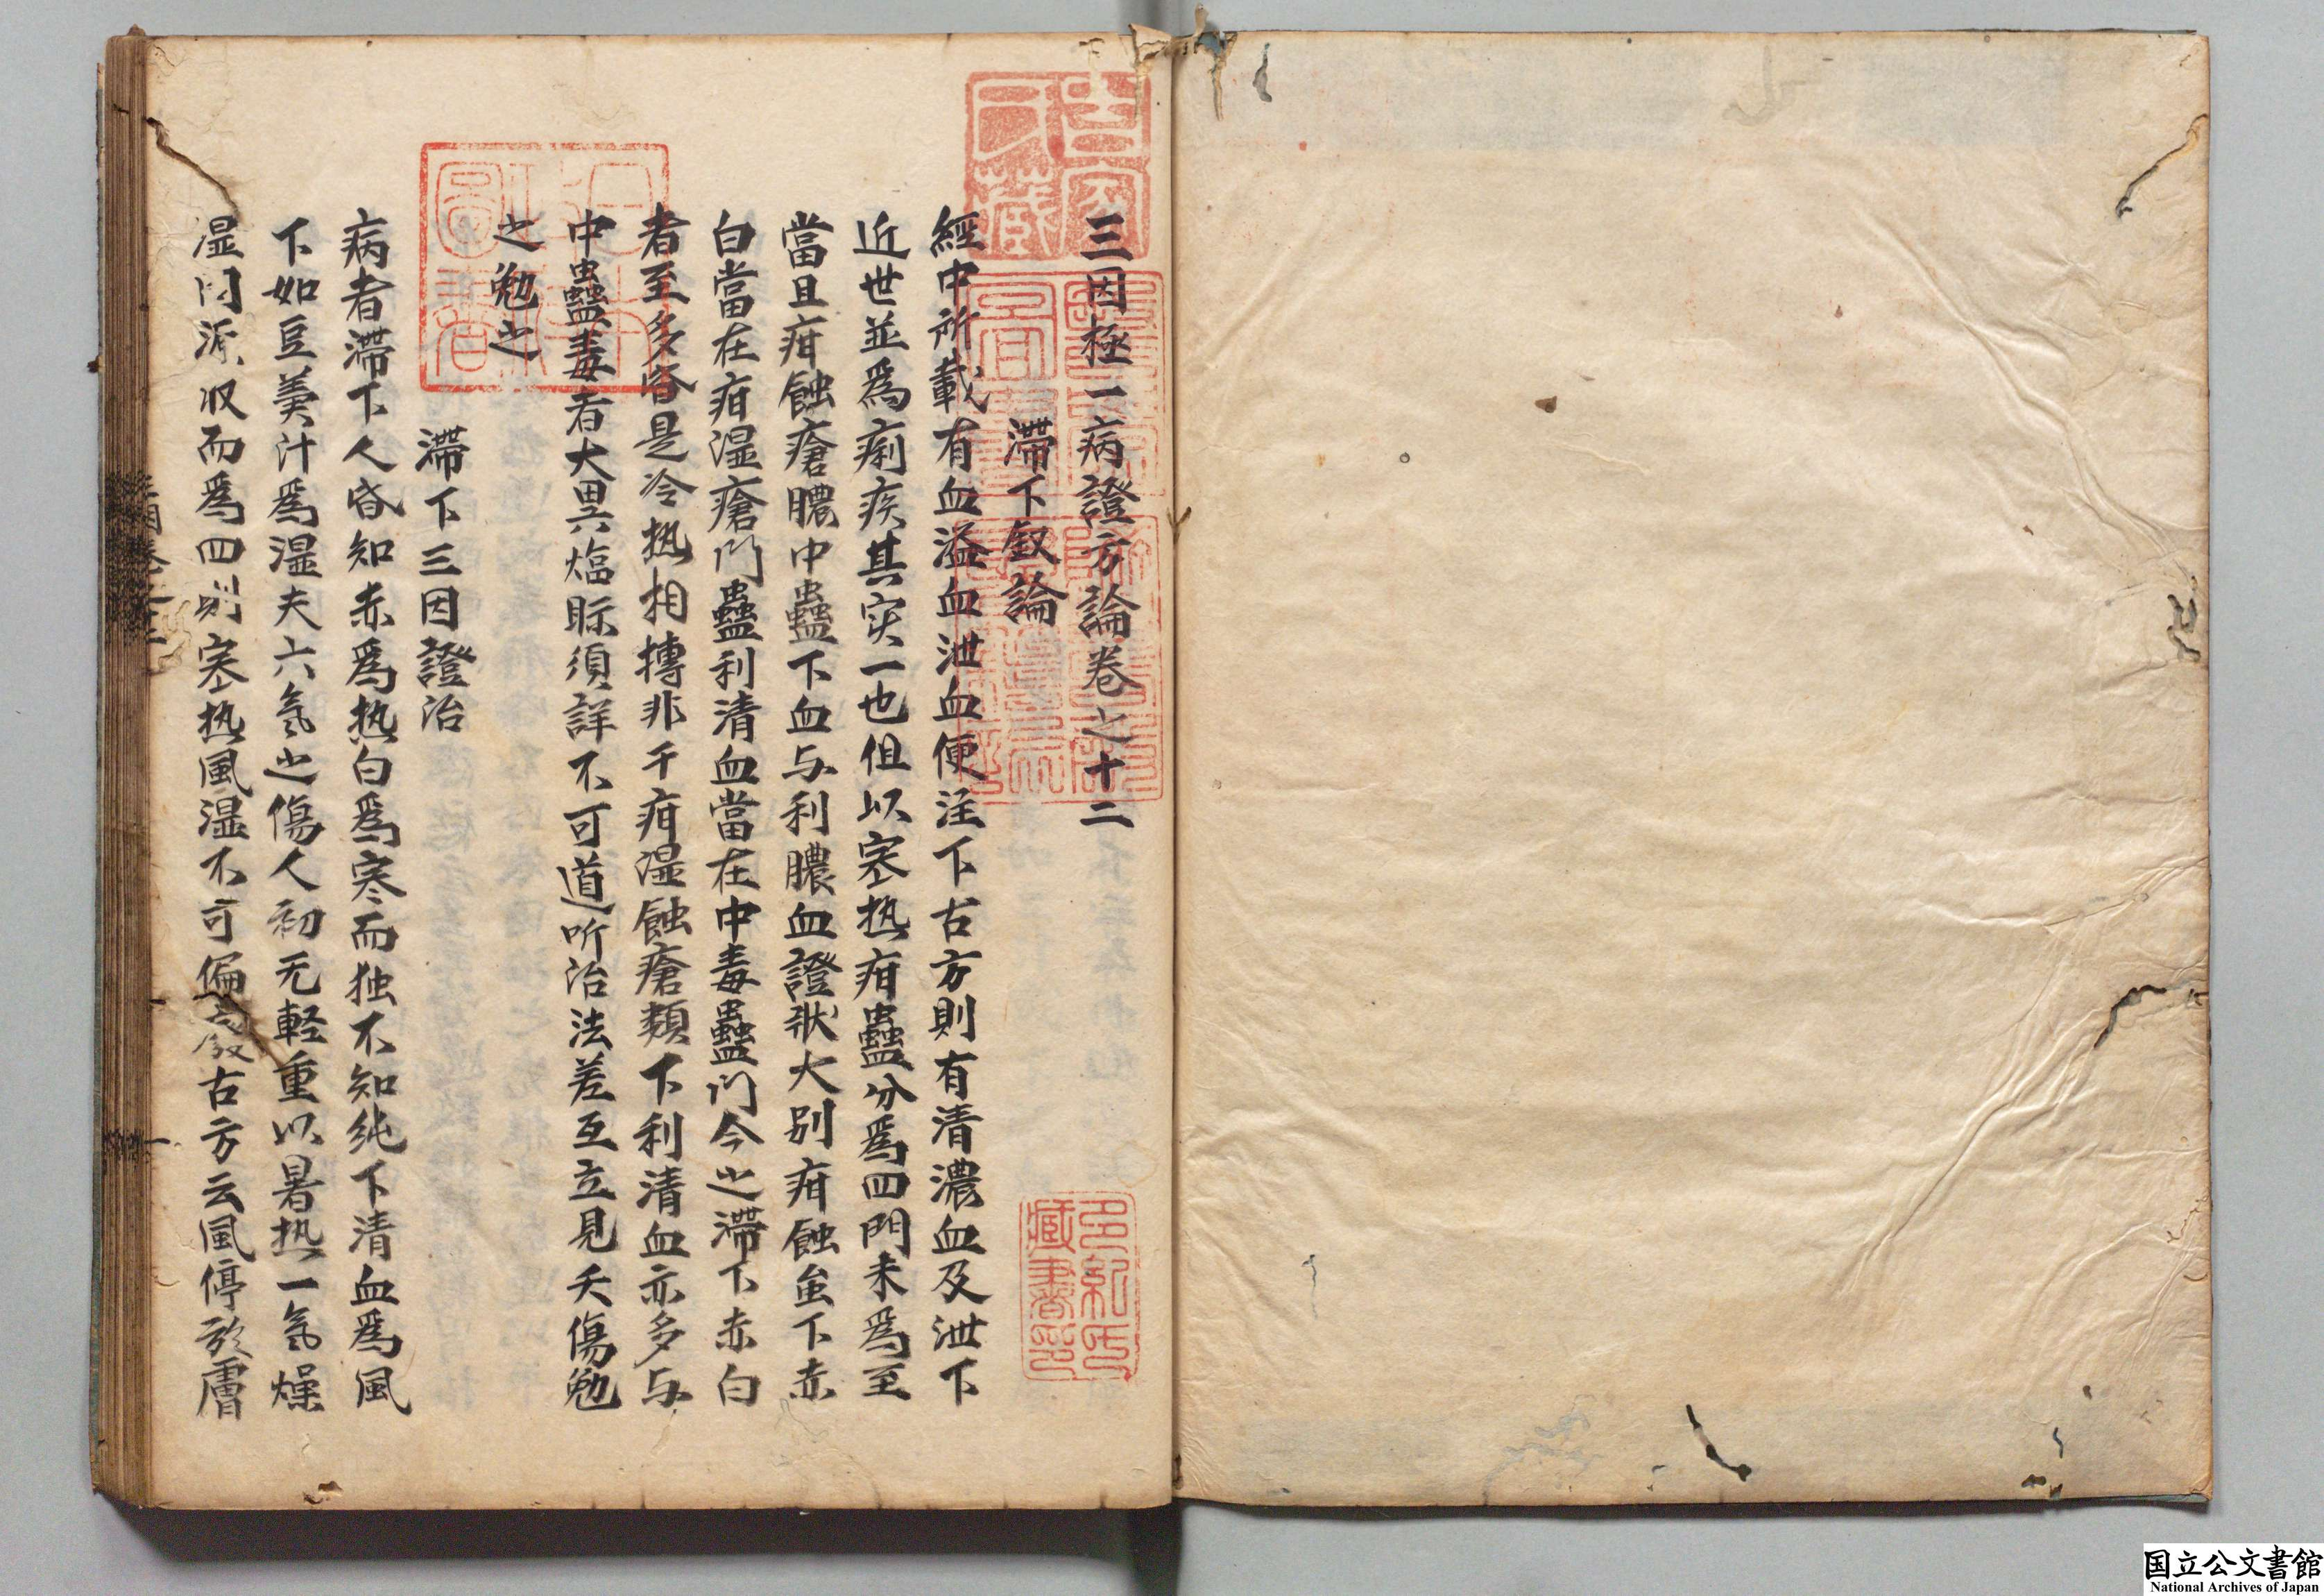 三因極一病證方論卷之十二
滯下叙論
經中所載有血溢血泄血便注下古方則有清濃血及泄下
近世並爲痢疾其实一也但以寒热疳蠱分爲四門未爲至
當且疳蝕瘡膿中蠱下血与利膿血證狀大別疳蝕虽下赤
白當在疳湿瘡門蠱利清血當在中毒蠱门今之滯下赤白
者至多皆是冷热相搏非干疳湿蝕瘡類下利清血亦多与
中蠱毒者大異临眎須詳不可道听治法差互立見夭傷勉
之勉之
滯下三因證治
病者滯下人皆知赤爲热白爲寒而独不知純下清血爲風
下如豆羹汁爲湿夫六氣之傷人初无軽重以暑热一氣燥
湿同源收而爲四則寒热風湿不可偏廢古方云風停於膚
三因卷之十二
多紀氏藏書印
国立公文書館
National Archives of Japan